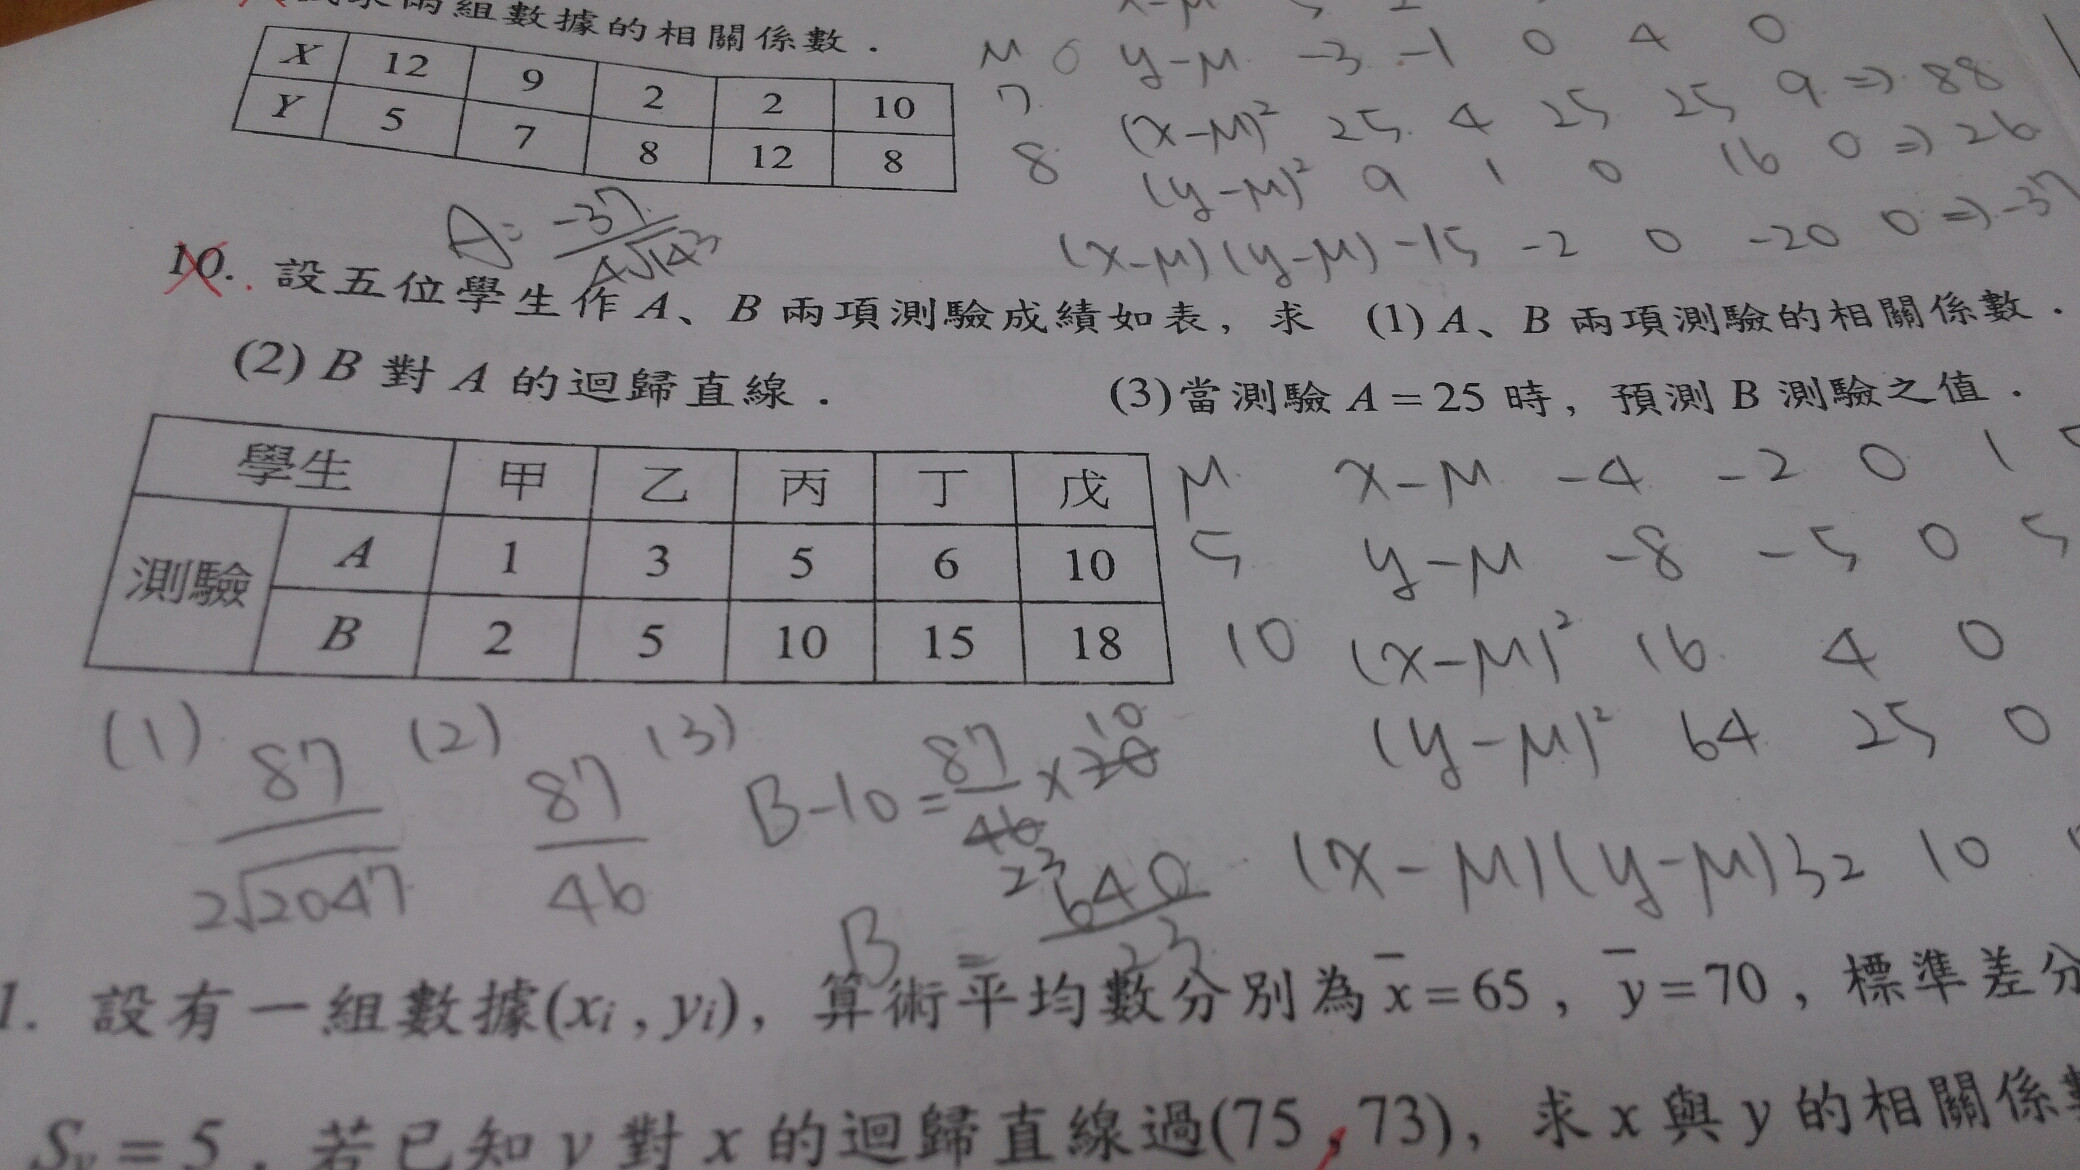 兩組數據的相關係數．
X 12 9 2 2 10
Y 5 7 8 12 8
μ
7
8
y-μ -3 -1 0 4 0
(x-μ)² 25 4 25 25 9 ⇒ 88
(y-μ)² 9 1 0 16 0 ⇒ 26
(x-μ)(y-μ) -15 -2 0 -20 0 ⇒ -37
A: -37/4√143
10. 設五位學生作 A、B 兩項測驗成績如表，求 (1) A、B 兩項測驗的相關係數．
(2) B 對 A 的迴歸直線． (3)當測驗 A = 25 時，預測 B 測驗之值．
學生 甲 乙 丙 丁 戊
測驗
A 1 3 5 6 10
B 2 5 10 15 18
μ
5
10
x-μ -4 -2 0 1
y-μ -8 -5 0 5
(x-μ)² 16 4 0
(y-μ)² 64 25 0
(x-μ)(y-μ) 32 10
(1) 87/2√2047
(2) 87/46
(3) B-10 = 87/46 × 20 10
23
B = 640/23
1. 設有一組數據(xi , yi)，算術平均數分別為 x̄ = 65，ȳ = 70，標準差分
= 5，若已知 y 對 x 的迴歸直線過(75 , 73)，求 x 與 y 的相關係數